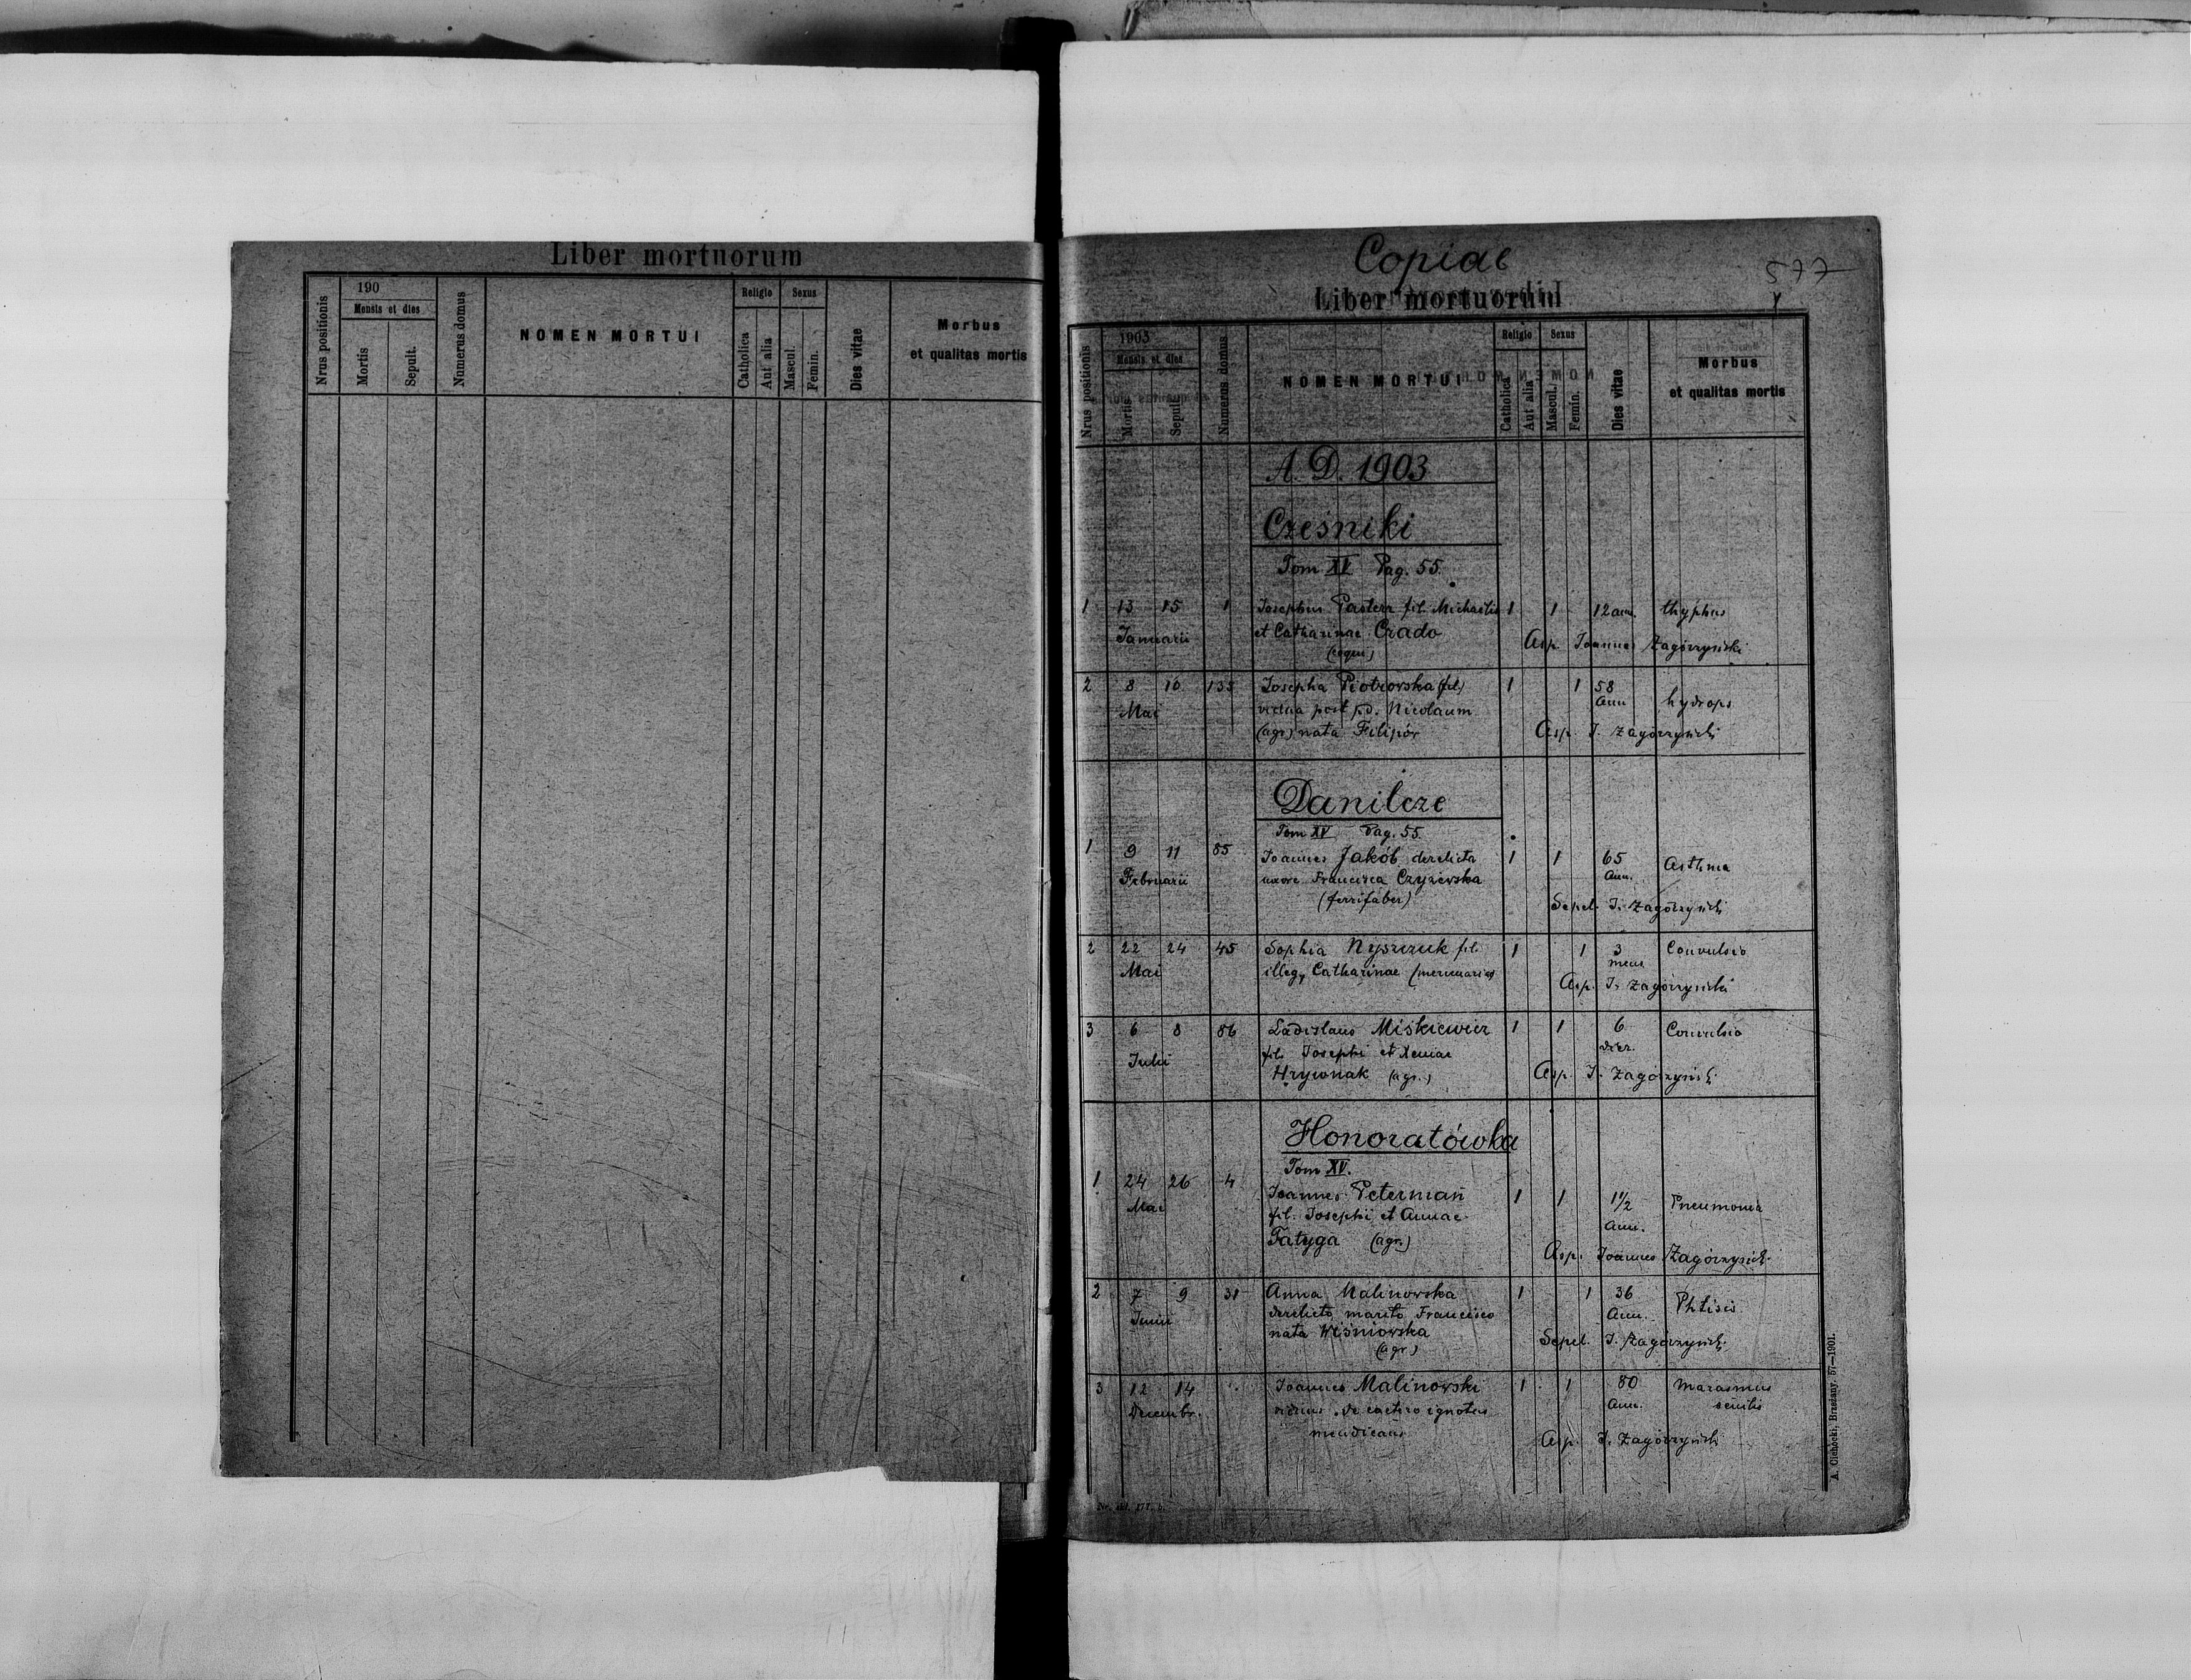 Liber mortuorum
Nrus positionis
190
Mensis et dies
Mortis
Sepult.
Numerus domus
NOMEN MORTUI
Religio
Catholica
Aut alia
Sexus
Mascul.
Femin.
Dies vitae
Morbus
et qualitas mortis
Copiae
577
Liber mortuorum
Nrus positionis
1903
Mensis et dies
Mortis
Sepult.
Numerus domus
NOMEN MORTUI
Religio
Catholica
Aut alia
Sexus
Mascul.
Femin.
Dies vitae
Morbus
et qualitas mortis
A. D. 1903
Cześniki
Tom XV Pag. 55.
1 13 15 1 Josephus Pasterz fil. Michaelis 1 1 12 ann. thyphus
Januarii et Catharinae Czado Asp. Joannes Zagórzyński
2 8 10 135 Josepha Piotrowska (fil) 1 1 58 hydrops
Mai vidua post p.d. Nicolaum Ann
(agr) nata Filipów Asp. J. Zagórzyński
Danilcze
Tom XV Pag. 55.
1 9 11 85 Joannes Jakób derelicta 1 1 65 Asthma
Februarii uxore Francisca Czyżewska Ann.
(ferrifaber) Sepel. J. Zagórzyński
2 22 24 45 Sophia Nyszczuk fil. 1 1 3 Convulsio
Mai illeg. Catharinae (mercenaria) mens
Asp. J. Zagórzyński
3 6 8 86 Ladislaus Miśkiewicz 1 1 6 Convulsio
Julii fil. Josephi et Xeniae dier.
Hrywnak (agr.) Asp. J. Zagórzyński
Honoratówka
Tom XV.
1 24 26 4 Joannes Peterman 1 1 1 1/2 Pneumonia
Mai fil. Josephi et Annae Ann.
Fatyga (agr.) Asp. Joannes Zagórzyński
2 7 9 31 Anna Malinowska 1 1 36 Phtisis
Junii derelicto marito Francisco Ann.
nata Wiśniowska Sepel. J. Zagórzyński
(agr.)
3 12 14 Joannes Malinowski 1 1 80 Marasmus
Decembr. viduus de caetero ignotus Ann. senilis
mendicans Asp. J. Zagórzyński
A. Cichocki, Brzeżany. 57—1901.